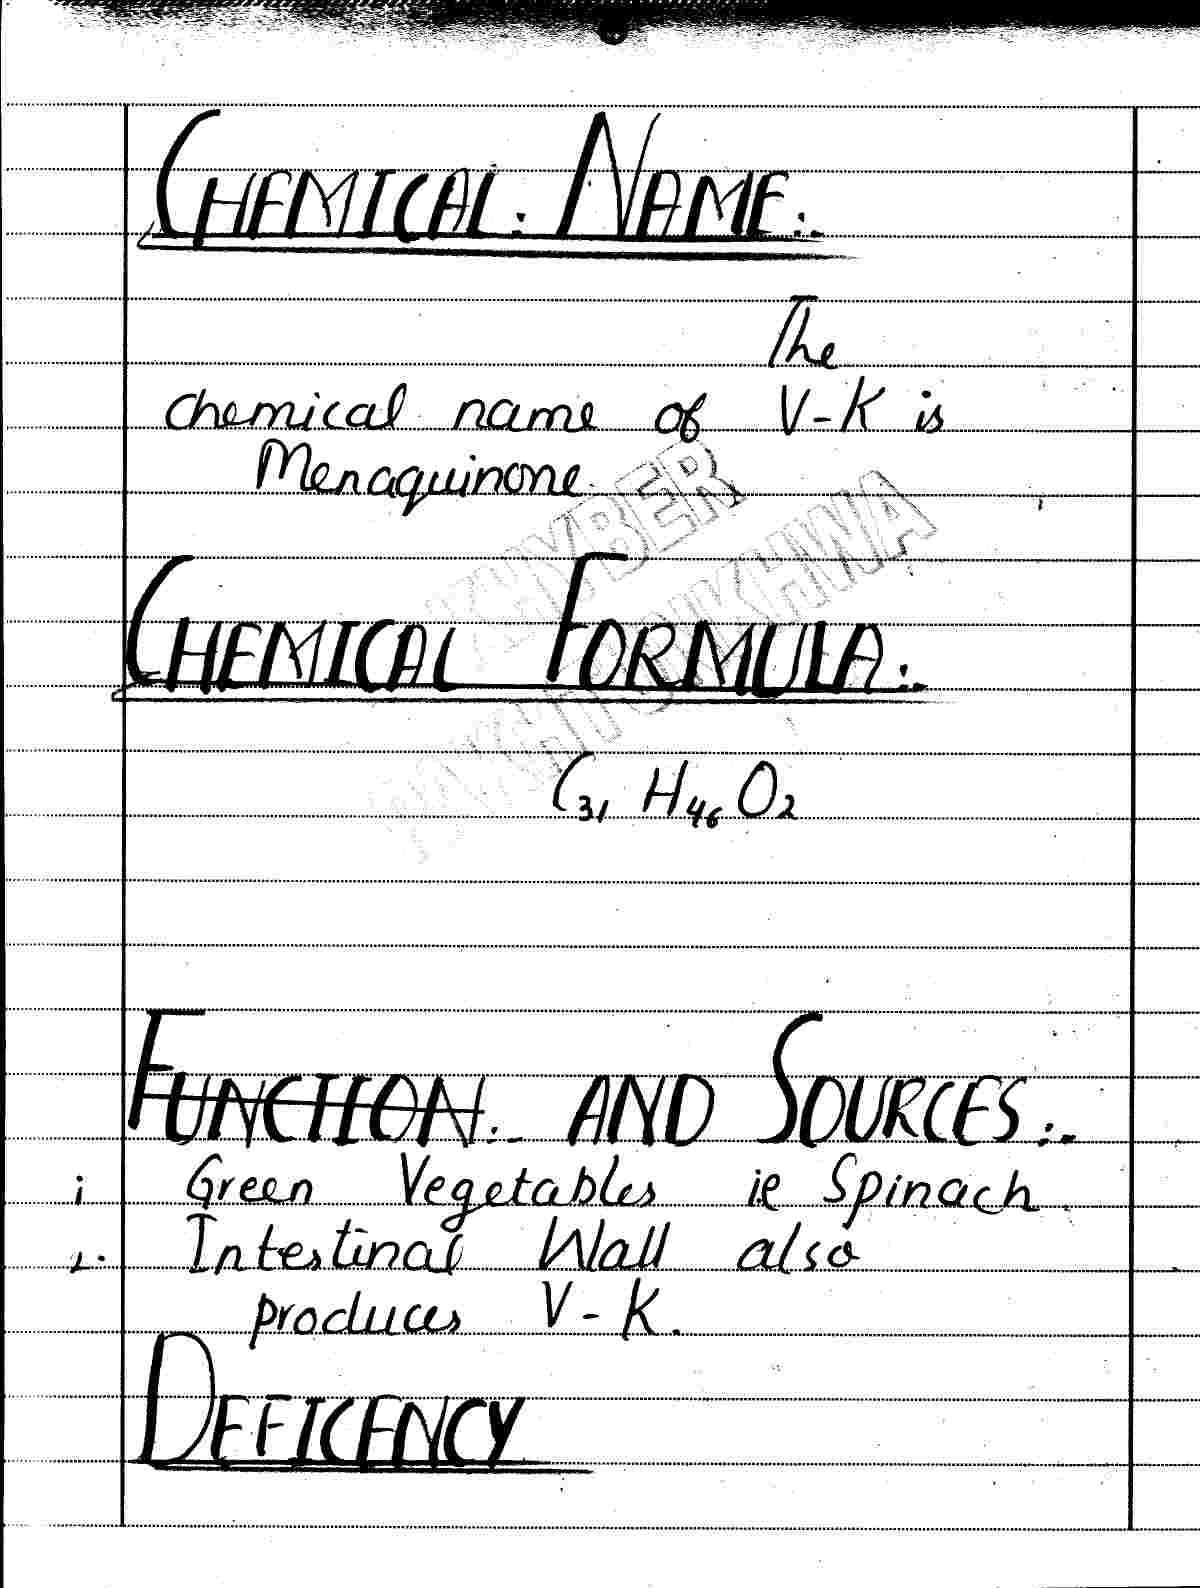 CHEMICAL: NAME:-
The
chemical name of V-K is
Menaquinone.
KHYBER
PAKHTUNKHWA
CHEMICAL FORMULA:-
C31 H46 O2
FUNCTION:- AND SOURCES:-
i Green Vegetables ie Spinach.
2. Intestinal Wall also
produces V-K.
DEFICENCY